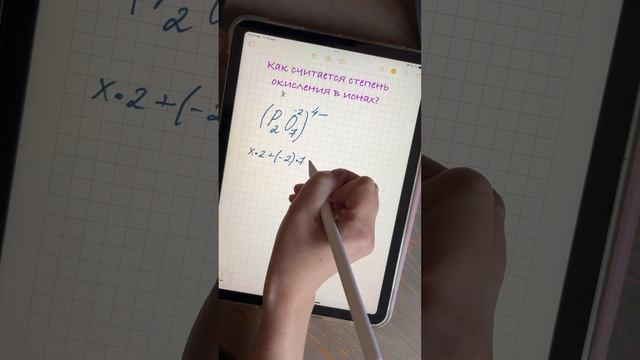 Как считается степень
окисления в ионах?
x -2
(P₂O₇)⁴⁻
x•2+(-2)•7